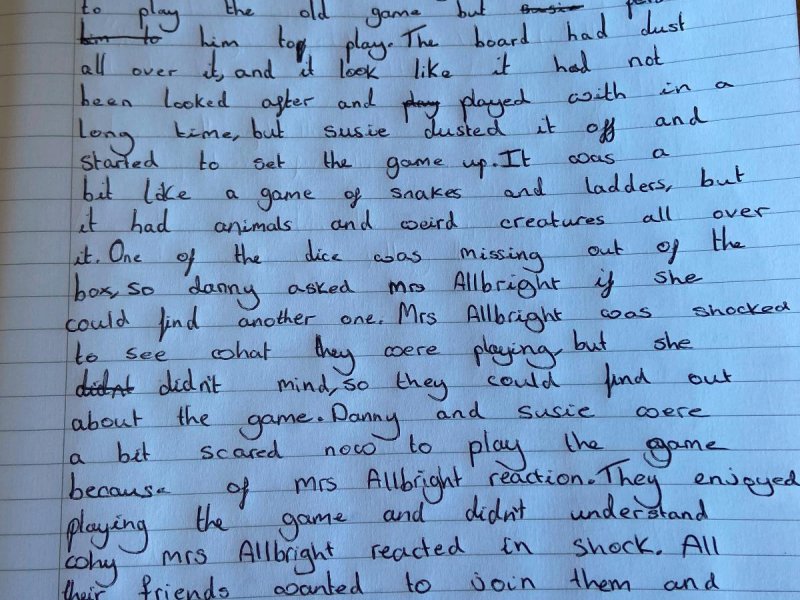 to play the old game but
him to play. The board had dust
all over it, and it look like it had not
been looked after and played with in a
long time, but susie dusted it off and
started to set the game up. It was a
bit like a game of snakes and ladders, but
it had animals and weird creatures all over
it. One of the dice was missing out of the
box, so danny asked mrs Allbright if she
could find another one. Mrs Allbright was shocked
to see what they were playing, but she
didn't mind, so they could find out
about the game. Danny and susie were
a bit scared now to play the game
because of mrs Allbright reaction. They enjoyed
playing the game and didn't understand
why mrs Allbright reacted in shock. All
their friends wanted to join them and